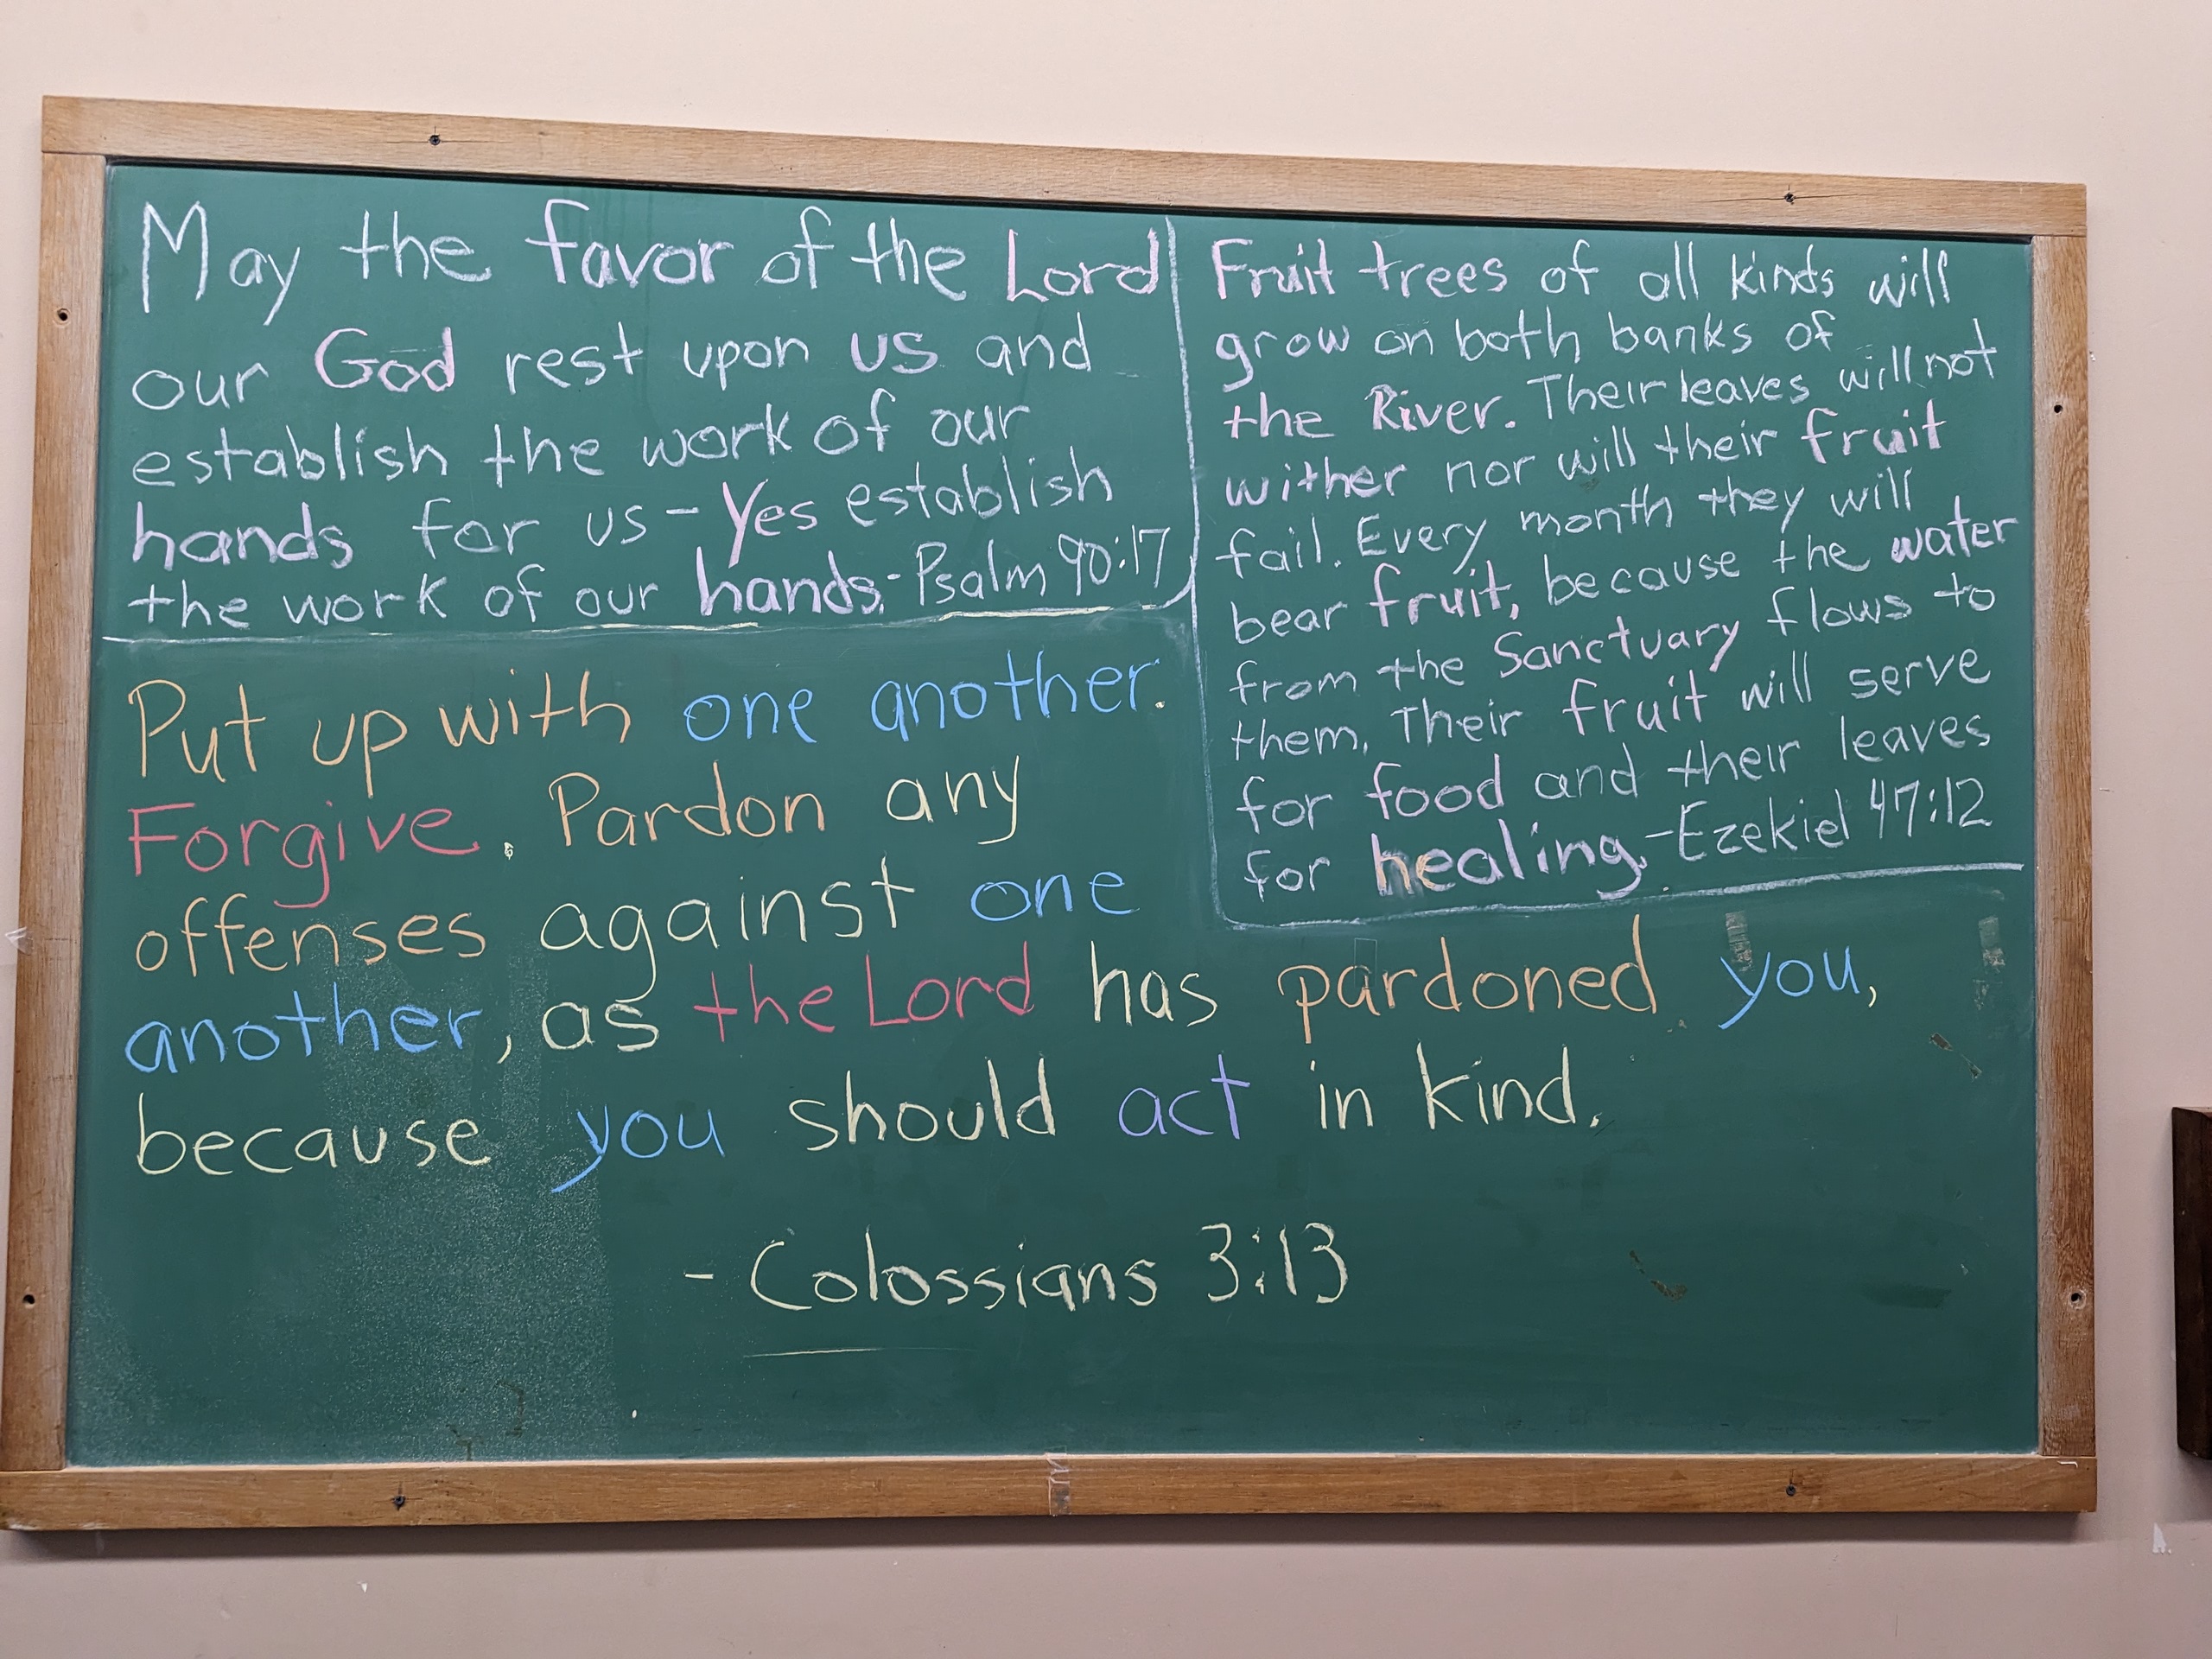 May the favor of the Lord
our God rest upon us and
establish the work of our
hands for us - Yes establish
the work of our hands. - Psalm 90:17
Fruit trees of all kinds will
grow on both banks of
the River. Their leaves will not
wither nor will their fruit
fail. Every month they will
bear fruit, because the water
from the Sanctuary flows to
them. Their fruit will serve
for food and their leaves
for healing. - Ezekiel 47:12
Put up with one another.
Forgive. Pardon any
offenses against one
another, as the Lord has pardoned you,
because you should act in kind.
- Colossians 3:13